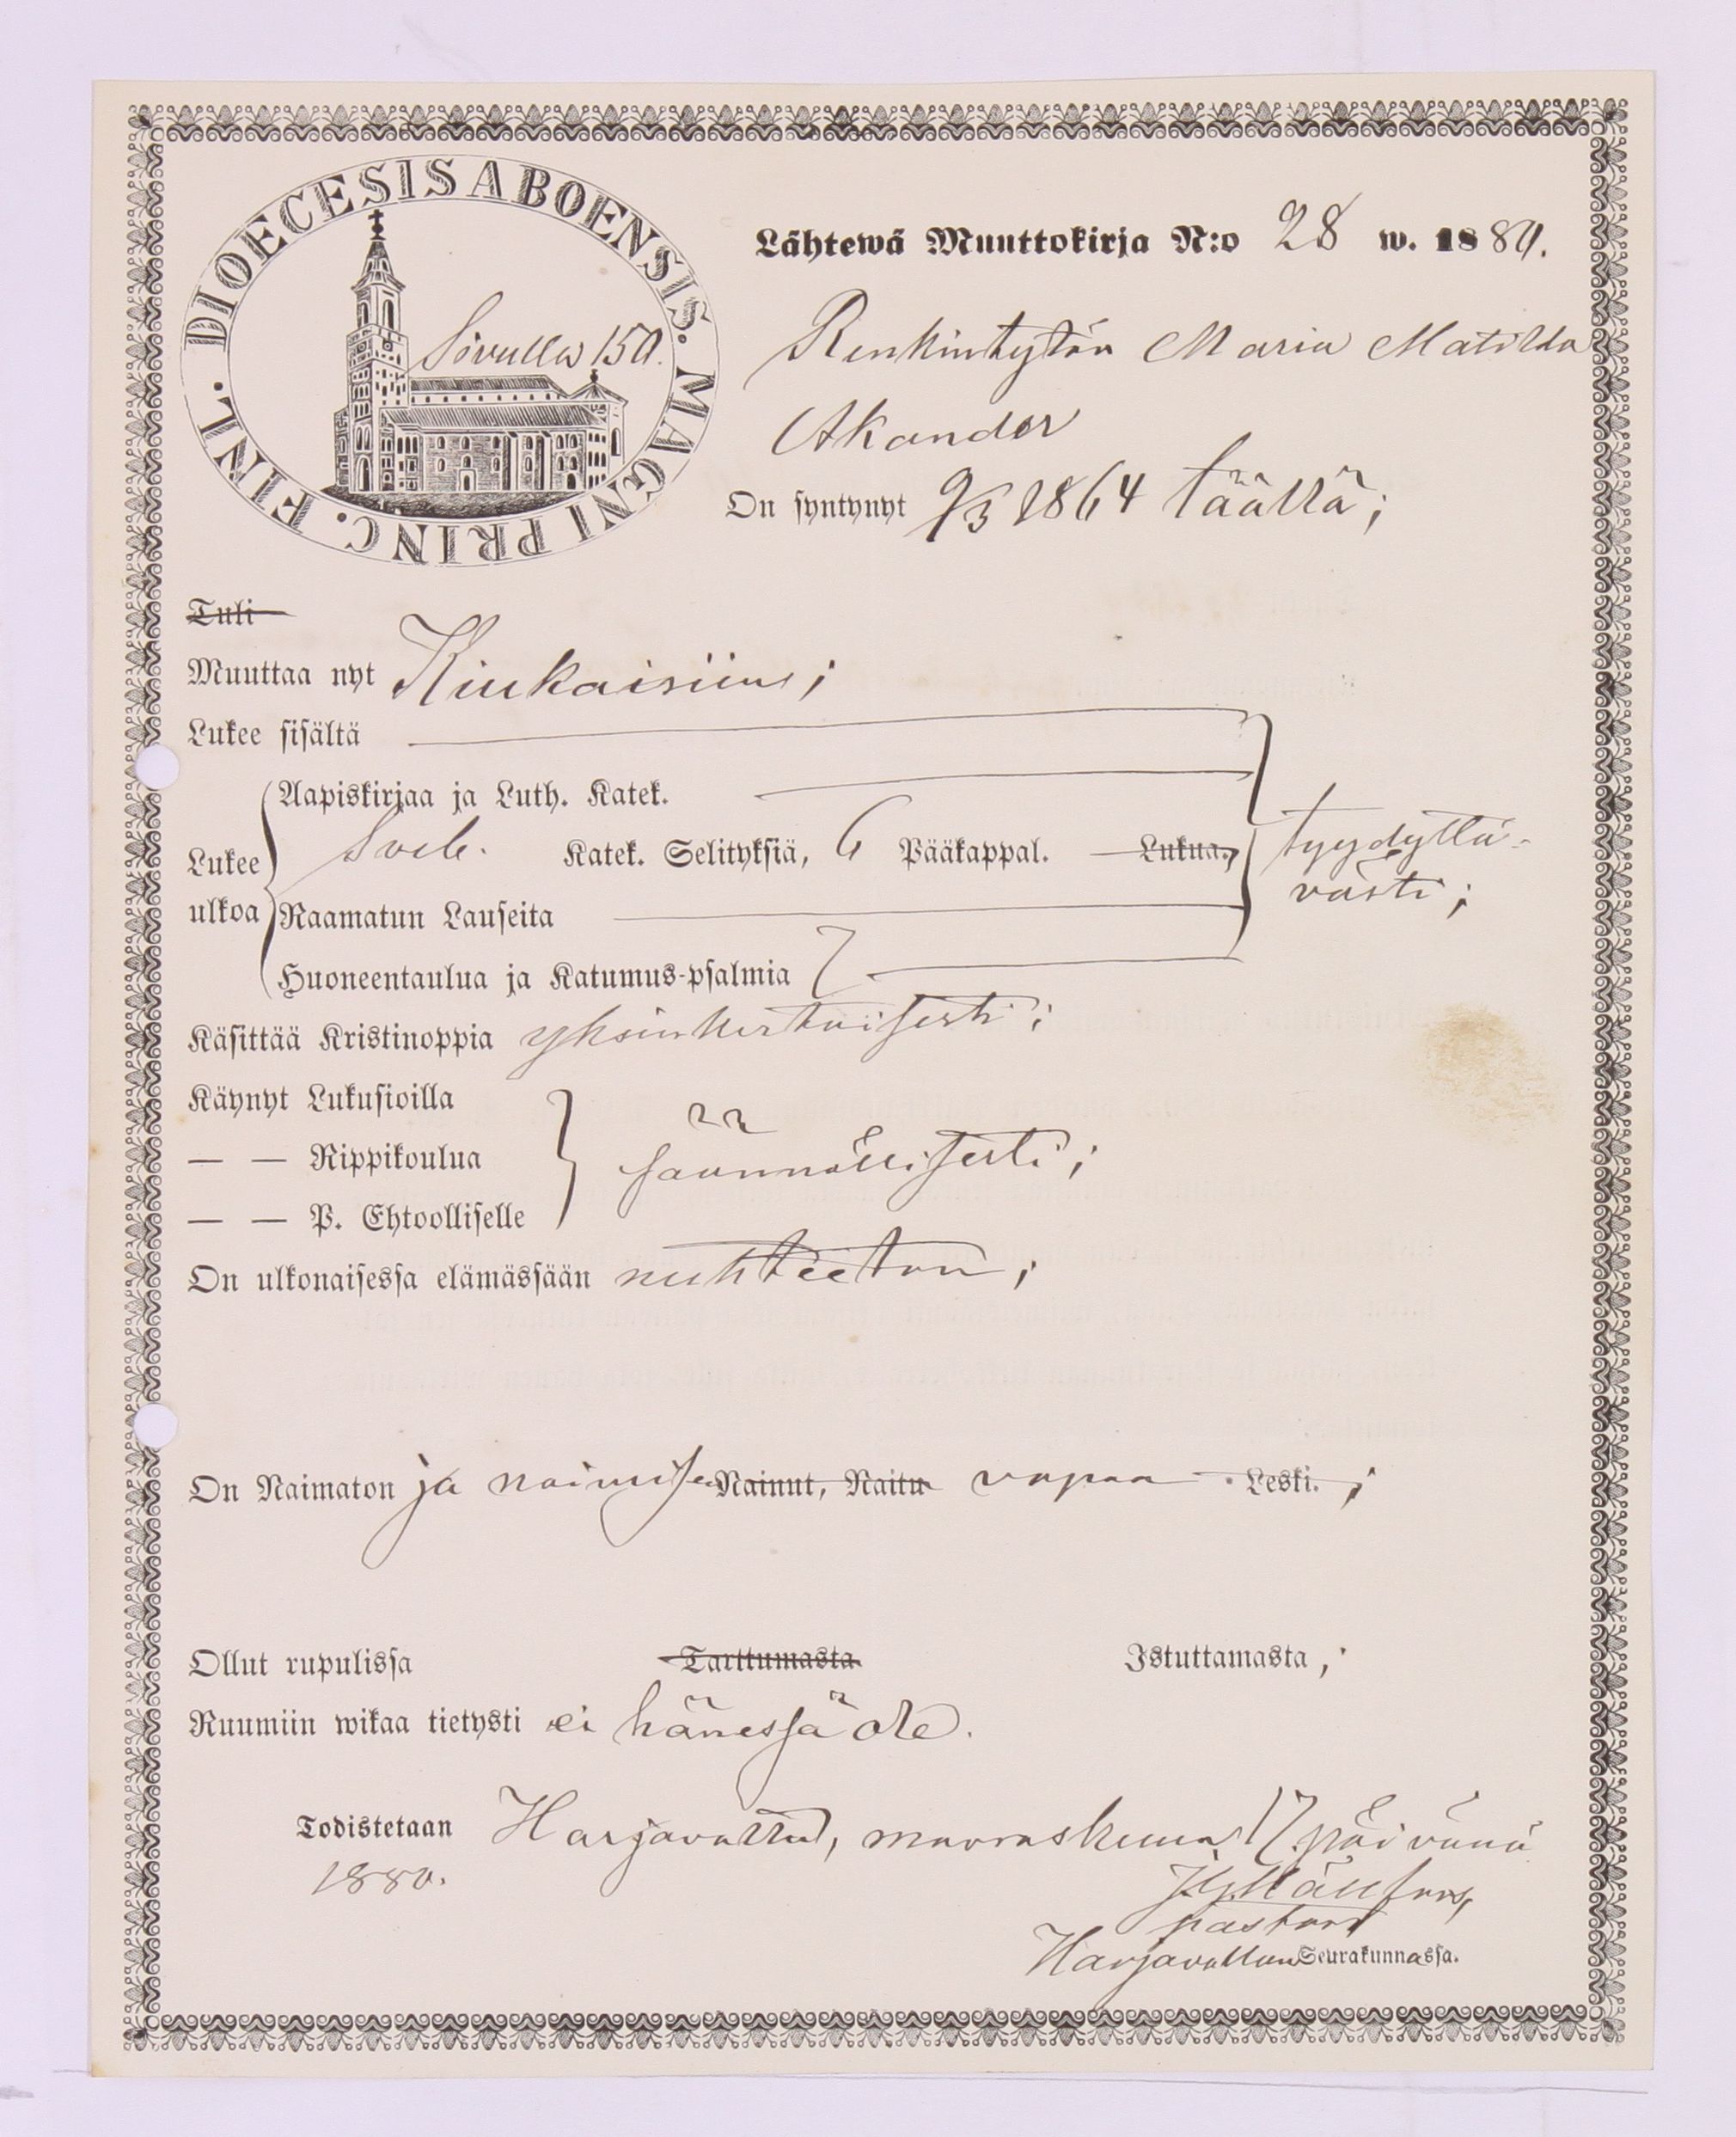 DIOECESIS ABOENSIS. MAGNI PRINC. FINL.
Sivulla 150.
Lähtewä Muuttokirja N:o 28 w. 1880.
Renkintytön Maria Matilda
Akander
On syntynyt 9/3 1864 täällä;
Tuli
Muuttaa nyt Kiukaisiin;
Lukee sisältä
Aapiskirjaa ja Luth. Katek.
Lukee ulkoa
Sveb. Katek. Selityksiä, 6 Pääkappal. Lukua,
tyydyttävästi;
Raamatun Lauseita
Huoneentaulua ja Katumus-psalmia 7
Käsittää Kristinoppia yksinkertaisesti;
Käynyt Lukusioilla
— — Rippikoulua
säännöllisesti;
— — P. Ehtoolliselle
On ulkonaisessa elämässään nuhteeton;
On Naimaton ja naimisen Nainut, Naitu vapaa Leski. ;
Ollut rupulissa Tarttumasta Istuttamasta,
Ruumiin wikaa tietysti ei hänessä ole.
Todistetaan Harjavalta, marraskuun 17 päivänä
1880.
pastori
Harjavallan Seurakunnassa.